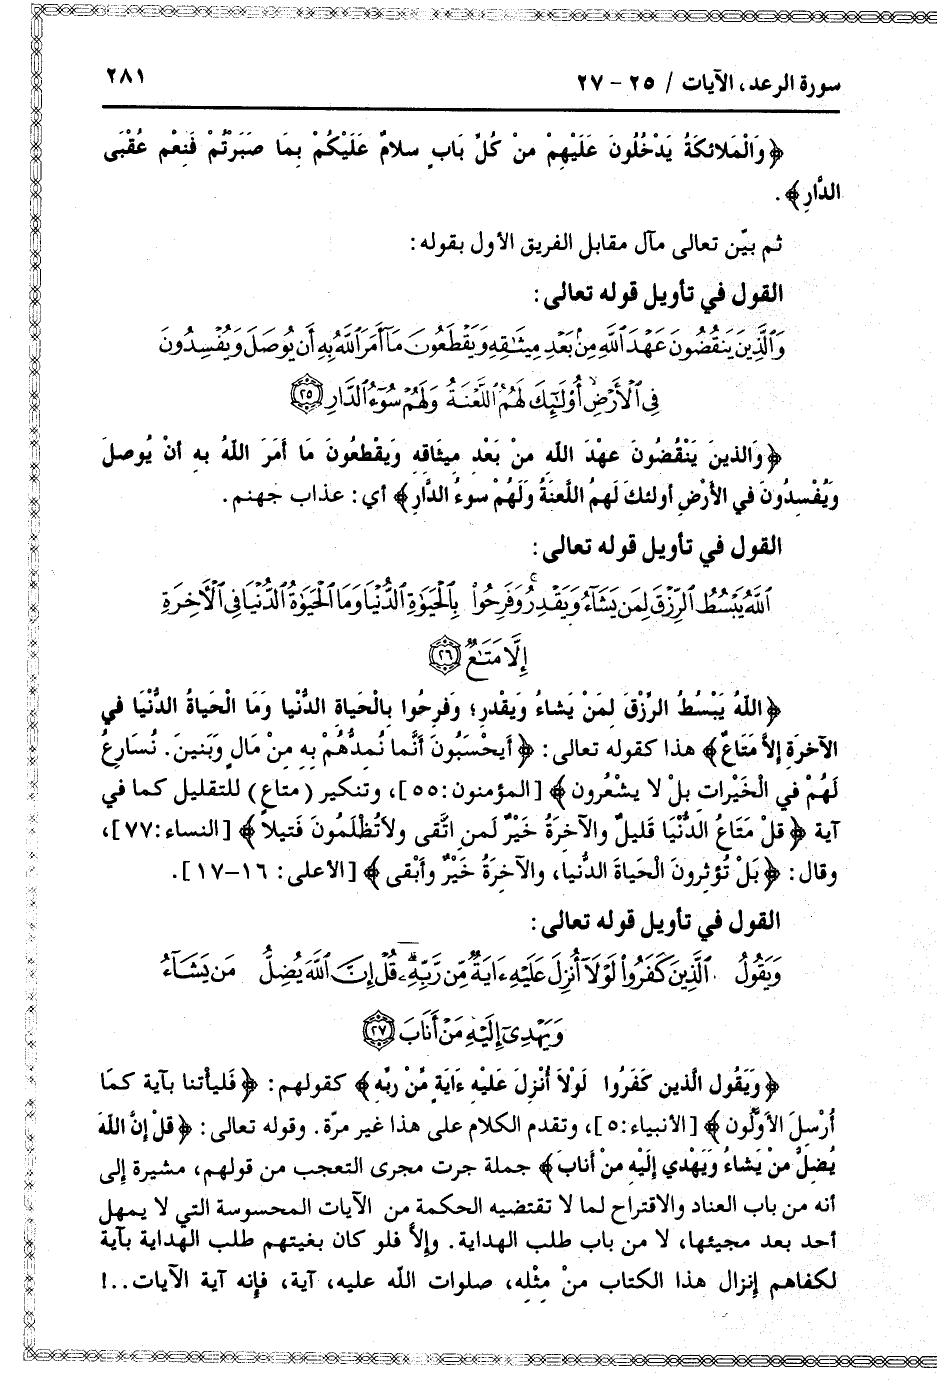 سورة الرعد، الآيات / ٢٥ - ٢٧ ٢٨١
﴿وَالْمَلائكَةُ يَدْخُلُونَ عَلَيْهِمْ منْ كُلِّ بَابٍ سلامٌ عَلَيْكُمْ بِمَا صَبَرْتُمْ فَنِعْم عُقْبَى
الدَّارِ﴾.
ثم بيّن تعالى مآل مقابل الفريق الأول بقوله:
القول في تأويل قوله تعالى:
وَٱلَّذِينَ يَنقُضُونَ عَهْدَ ٱللَّهِ مِنۢ بَعْدِ مِيثَٰقِهِۦ وَيَقْطَعُونَ مَآ أَمَرَ ٱللَّهُ بِهِۦٓ أَن يُوصَلَ وَيُفْسِدُونَ
فِي ٱلْأَرْضِ ۙ أُو۟لَٰٓئِكَ لَهُمُ ٱللَّعْنَةُ وَلَهُمْ سُوٓءُ ٱلدَّارِ ٢٥
﴿وَالذينَ يَنْقُضُونَ عهْدَ الله منْ بَعْد ميثَاقه وَيَقْطعُونَ مَا أَمَرَ اللهُ به أنْ يُوصلَ
وَيُفْسِدُونَ في الأَرْضِ أولئكَ لَهمُ اللَّعنَةُ وَلَهُمْ سوءُ الدَّارِ﴾ أي: عذاب جهنم.
القول في تأويل قوله تعالى:
ٱللَّهُ يَبْسُطُ ٱلرِّزْقَ لِمَن يَشَآءُ وَيَقْدِرُ ۚ وَفَرِحُوا۟ بِٱلْحَيَوٰةِ ٱلدُّنْيَا وَمَا ٱلْحَيَوٰةُ ٱلدُّنْيَا فِي ٱلْءَاخِرَةِ
إِلَّا مَتَٰعٌ ٢٦
﴿اللهُ يَبْسُطُ الرِّزْقَ لمَنْ يَشاءُ ويَقْدرِ؛ وَفرِحُوا بِالْحَيَاة الدُّنْيا وَمَا الْحَيَاةُ الدُّنْيَا في
الآخرَة إلاَّ مَتَاعٌ﴾ هذا كقوله تعالى: ﴿أَيحْسَبُونَ أَنَّما نُمدُّهُمْ بِه مِنْ مَالٍ وَبَنينَ. نُسَارِعُ
لَهُمْ في الْخَيْرَات بلْ لا يشْعُرون﴾ [المؤمنون:٥٥]، وتنكير (متاع) للتقليل كما في
آية ﴿قلْ مَتَاعُ الدُّنْيَا قَليلٌ والآخرَةُ خَيْرٌ لَمنِ اتَّقى ولاَتُظْلَمُونَ فَتيلاً﴾ [النساء:٧٧]،
وقال: ﴿بَلْ تُؤثِرونَ الْحَياةَ الدُّنيا، والآخِرَةُ خَيْرٌ وأَبْقى﴾ [الأعلى: ١٦-١٧].
القول في تأويل قوله تعالى:
وَيَقُولُ ٱلَّذِينَ كَفَرُوا۟ لَوْلَآ أُنزِلَ عَلَيْهِ ءَايَةٌ مِّن رَّبِّهِۦ ۗ قُلْ إِنَّ ٱللَّهَ يُضِلُّ مَن يَشَآءُ
وَيَهْدِىٓ إِلَيْهِ مَنْ أَنَابَ ٢٧
﴿وَيَقُول الَّذين كَفَرُوا لَوْلاَ أُنْزِلَ عَلَيْه ءَايَة مِّنْ ربِّه﴾ كقولهم: ﴿فَليأتنا بآية كمَا
أُرْسلَ الأَوّلُون﴾ [الأنبياء:٥]، وتقدم الكلام على هذا غير مرّة. وقوله تعالى: ﴿قلْ إنَّ اللهَ
يُضلُّ منْ يَشاءُ وَيَهْدي إلَيْه منْ أنابَ﴾ جملة جرت مجرى التعجب من قولهم، مشيرة إلى
أنه من باب العناد والاقتراح لما لا تقتضيه الحكمة من الآيات المحسوسة التي لا يمهل
أحد بعد مجيئها، لا من باب طلب الهداية. وإلاَّ فلو كان بغيتهم طلب الهداية بآية
لكفاهم إنزال هذا الكتاب منْ مثْله، صلوات الله عليه، آية، فإنه آية الآيات..!